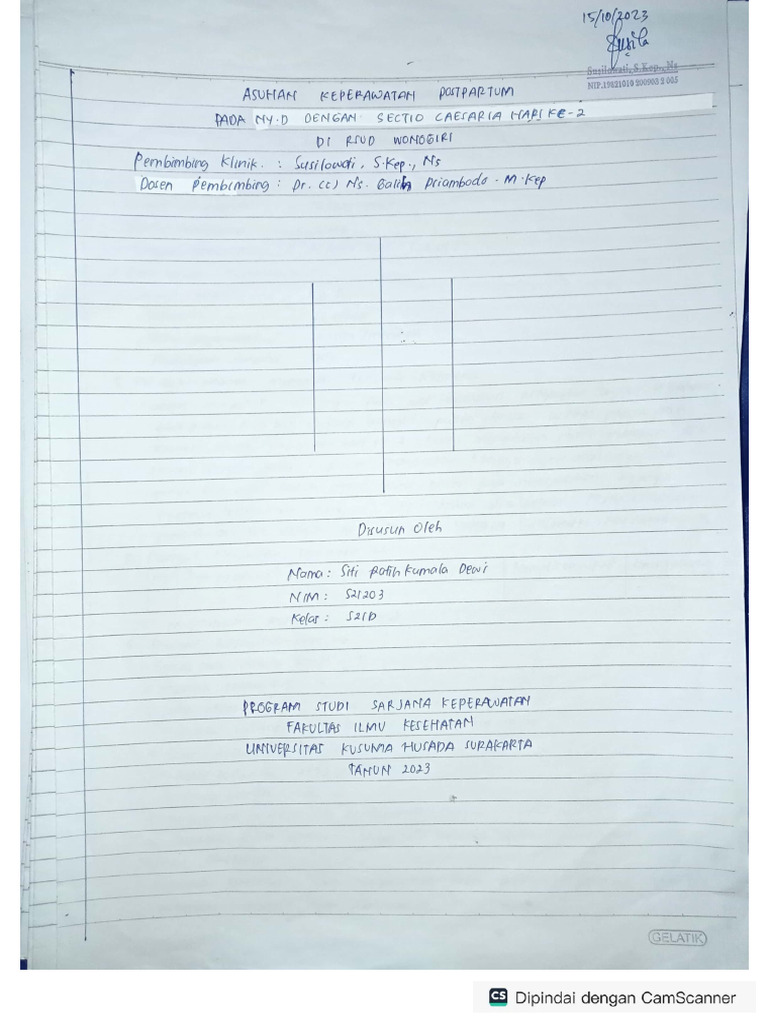 15/10/2023
Susila
Susilowati, S.Kep., Ns
NIP.19821010 200903 2 005
ASUHAN KEPERAWATAN POSTPARTUM
PADA NY.D DENGAN SECTIO CAESARIA HARI KE-2
DI RSUD WONOGIRI
Pembimbing Klinik. : Susilowati, S.Kep., Ns
Dosen Pembimbing : Dr. (c) Ns. Galih Priambodo - M.Kep
Disusun Oleh
Nama : Siti Ratih Kumala Dewi
NIM : S21203
Kelas : S21D
PROGRAM STUDI SARJANA KEPERAWATAN
FAKULTAS ILMU KESEHATAN
UNIVERSITAS KUSUMA HUSADA SURAKARTA
TAHUN 2023
GELATIK
CS Dipindai dengan CamScanner